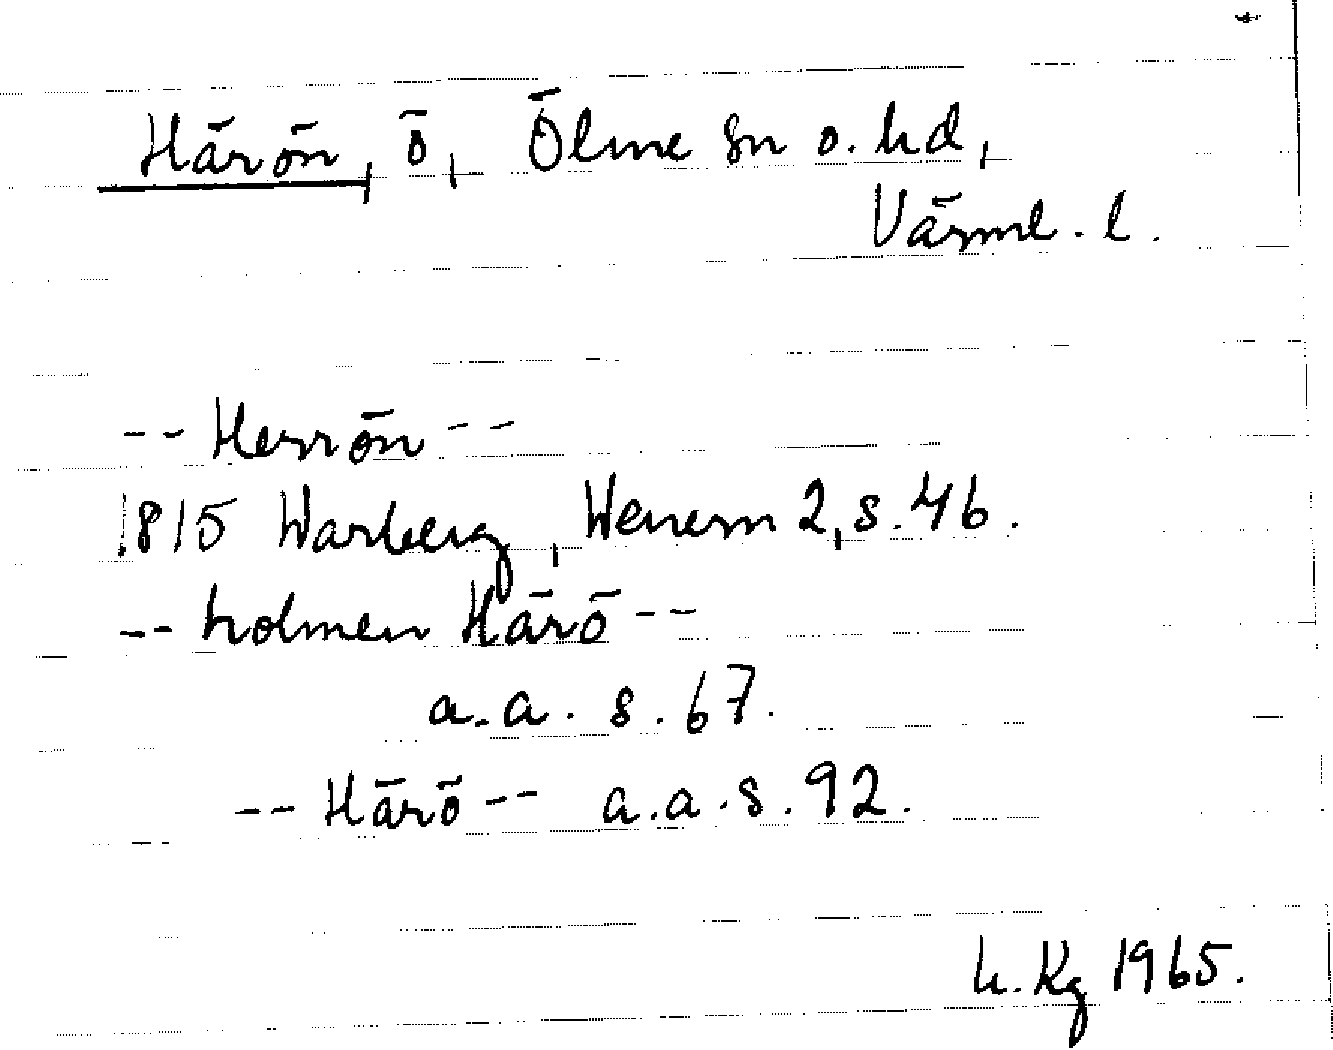 Härön, ö, Ölme sn o. hd,
Värml. l.
-- Herrön --
1815 Warberg, Wenern 2, s. 46.
-- holmen Härö --
a.a. s. 67.
-- Härö -- a.a. s. 92.
h. Kg 1965.